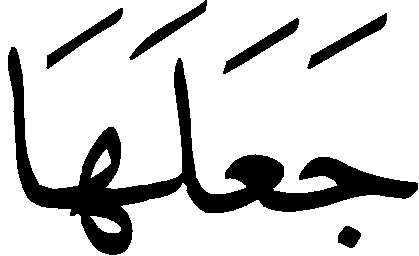 جَعَلَهَا